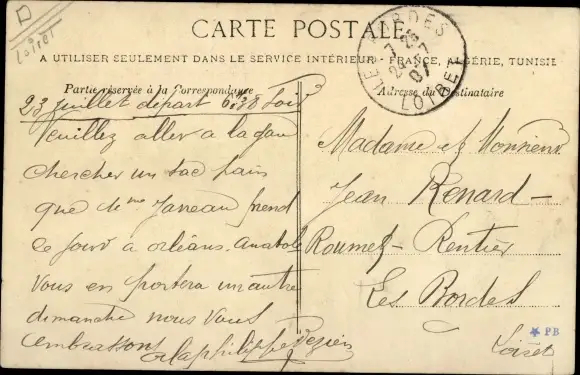 D
Loiret
CARTE POSTALE
A UTILISER SEULEMENT DANS LE SERVICE INTÉRIEUR - FRANCE, ALGÉRIE, TUNISIE
Partie réservée à la Correspondance
Adresse du Destinataire
LES BORDES
LOIRET
07
23 juillet départ 6h38 Soir
Veuillez aller a la gare
chercher un sac pain
que de Mme Javeau prend
ce soir a orléans. anatole
vous en portera un autre
dimanche nous vous
embrassons
Madame et Monsieur
Jean Renard-
Roumet- Rentier
Les Bordes
Loiret
PB